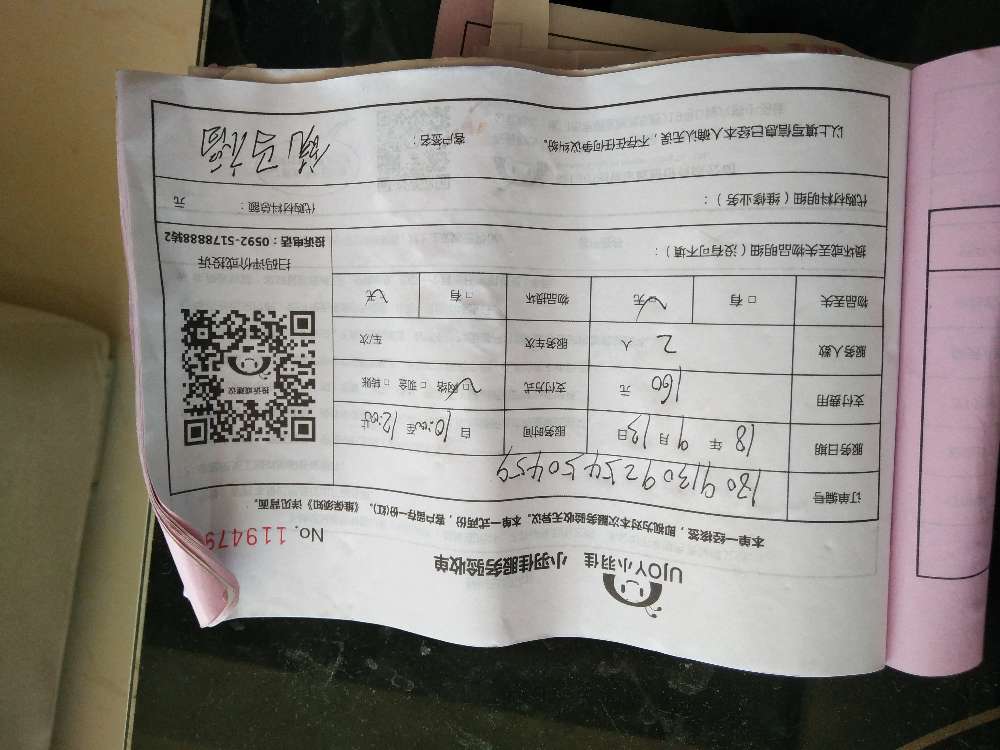 UJOY小羽佳 小羽佳服务验收单
No. 119479
本单一经接签，即视为对本次服务验收无异议。本单一式两份，客户留存一份(红)，《维保须知》详见背面。
订单编号 180913092545 0459
服务日期 18 年 9 月 13 日 服务时间 自 10:00 至 12:00 止
支付费用 160 元 支付方式 ☑网络 □现金 □转账
服务人数 2 人 服务车次 车/次
物品丢失 □有 ☑无 物品损坏 □有 ☑无
投诉或建议
扫码评价或投诉
投诉电话：0592-5178888转2
损坏或丢失物品明细（没有可不填）：
代购材料明细（维修业务）： 代购材料总额： 元
以上填写信息已经本人确认无误，不存在任何争议纠纷。 客户签名：